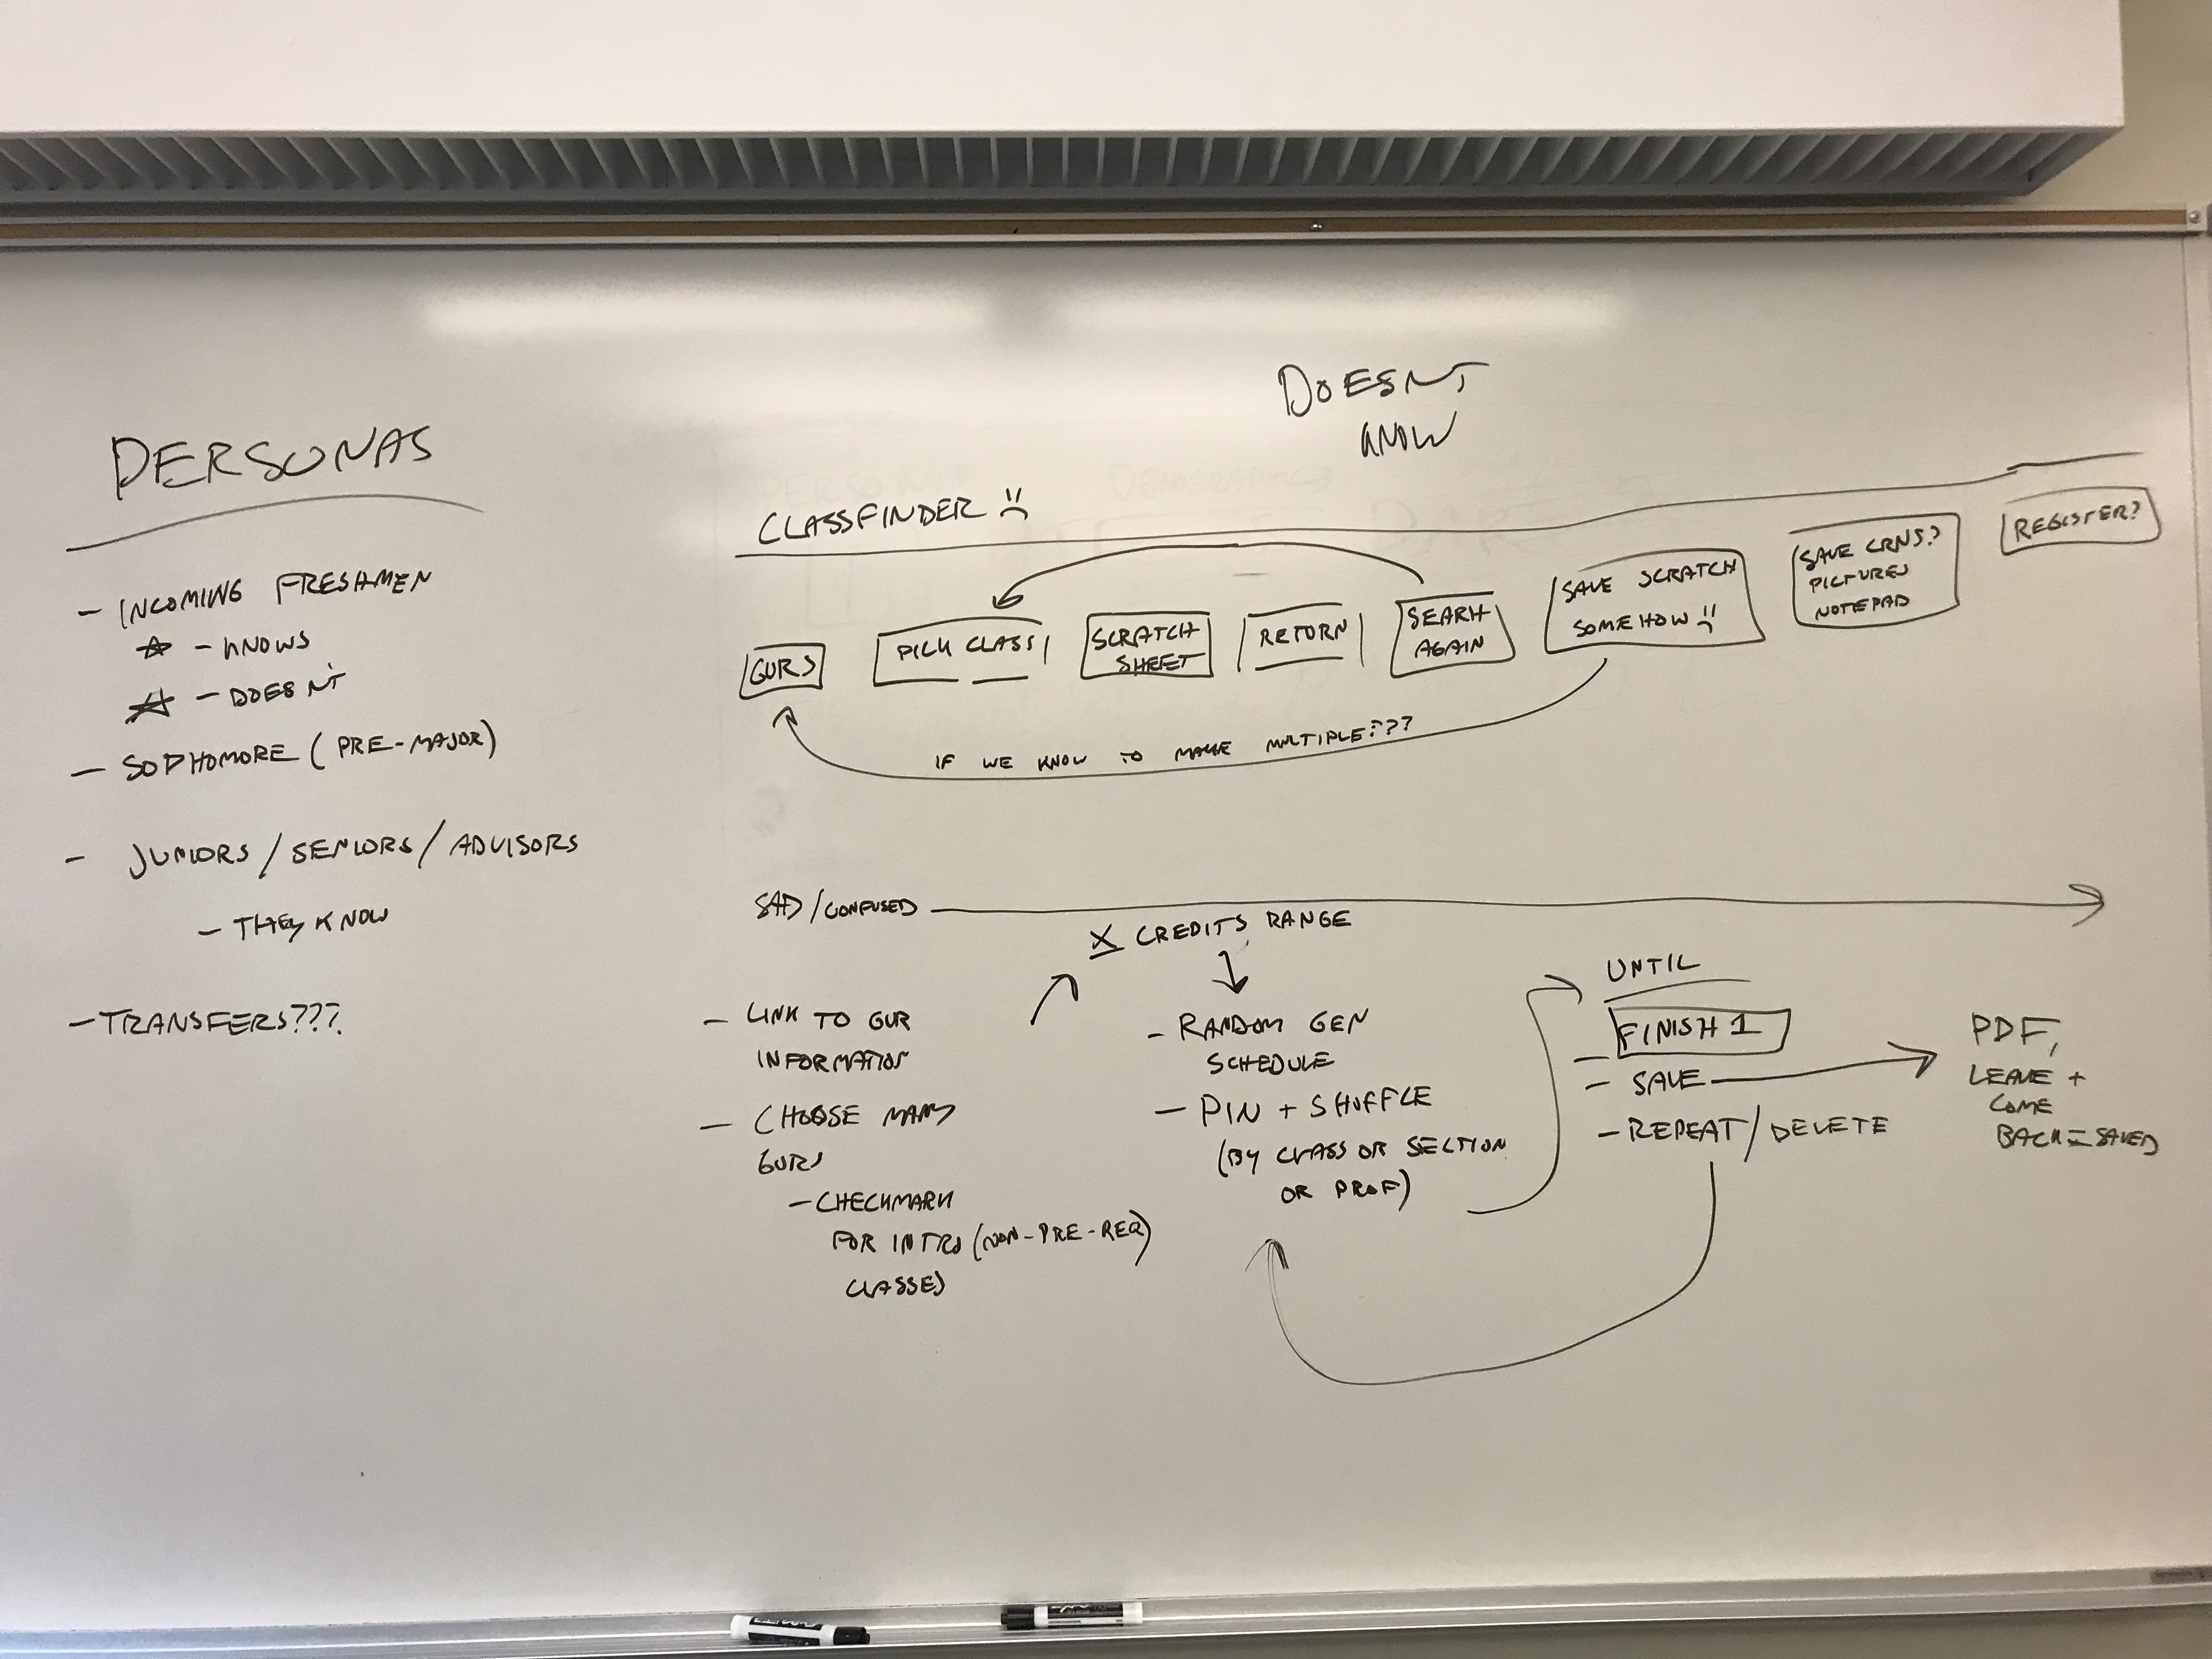 PERSONAS
- INCOMING FRESHMEN
☆ - KNOWS
☆ - DOESN'T
- SOPHOMORE (PRE-MAJOR)
- JUNIORS / SENIORS / ADVISORS
- THEY KNOW
- TRANSFERS???
DOESNT
KNOW
CLASSFINDER
GURS
PICK CLASS
SCRATCH
SHEET
RETURN
SEARH
AGAIN
SAVE SCRATCH
SOMEHOW
SAVE CRNS?
PICTURES
NOTEPAD
REGISTER?
IF WE KNOW TO MAKE MULTIPLE???
SAD / CONFUSED
X CREDITS RANGE
- LINK TO GUR
INFORMATION
- CHOOSE MANY
GURS
- CHECKMARK
FOR INTRO (NON-PRE-REQ)
CLASSES
- RANDOM GEN
SCHEDULE
- PIN + SHUFFLE
(BY CLASS OR SECTION
OR PROF)
UNTIL
FINISH 1
- SAVE
- REPEAT / DELETE
PDF,
LEAVE +
COME
BACK = SAVED